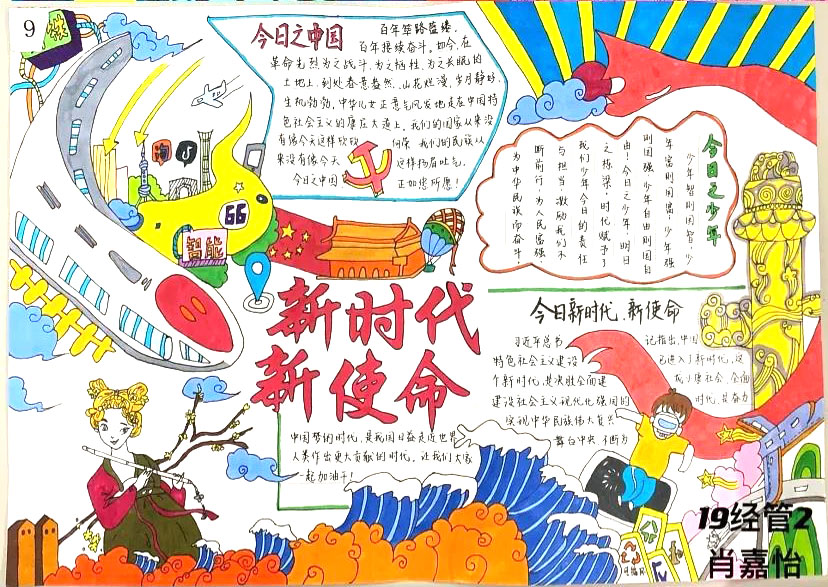 9
今日之中国
百年筚路蓝缕、
百年接续奋斗。如今,在
革命先烈为之战斗、为之牺牲、为之长眠的
土地上,到处春意盎然、山花烂漫、岁月静好、
生机勃勃,中华儿女正意气风发地走在中国特
色社会主义的康庄大道上。我们的国家从来没
有像今天这样欣欣 向荣 我们的民族从
来没有像今天 这样扬眉吐气。
今日之中国 正如您所愿!
淘
66
智能
今日之少年
少年智则国智,少
年富则国富,少年强
则国强,少年自由则国自
由!今日之少年,明日
之栋梁,时代赋予了
我们少年今日的责任
与担当,激励我们不
断前行,为人民富强
为中华民族而奋斗
新时代
新使命
今日新时代、新使命
习近平总书 记指出,中国
特色社会主义建设 已进入了新时代,这
个新时代,是决胜全面建 成小康社会、全面
建设社会主义现代化强国的 时代,是奋力
实现中华民族伟大复兴
舞台中央、不断为
中国梦的时代,是我国日益走近世界
人类作出更大贡献的时代。让我们大家
一起加油干!
19经管2
肖嘉怡